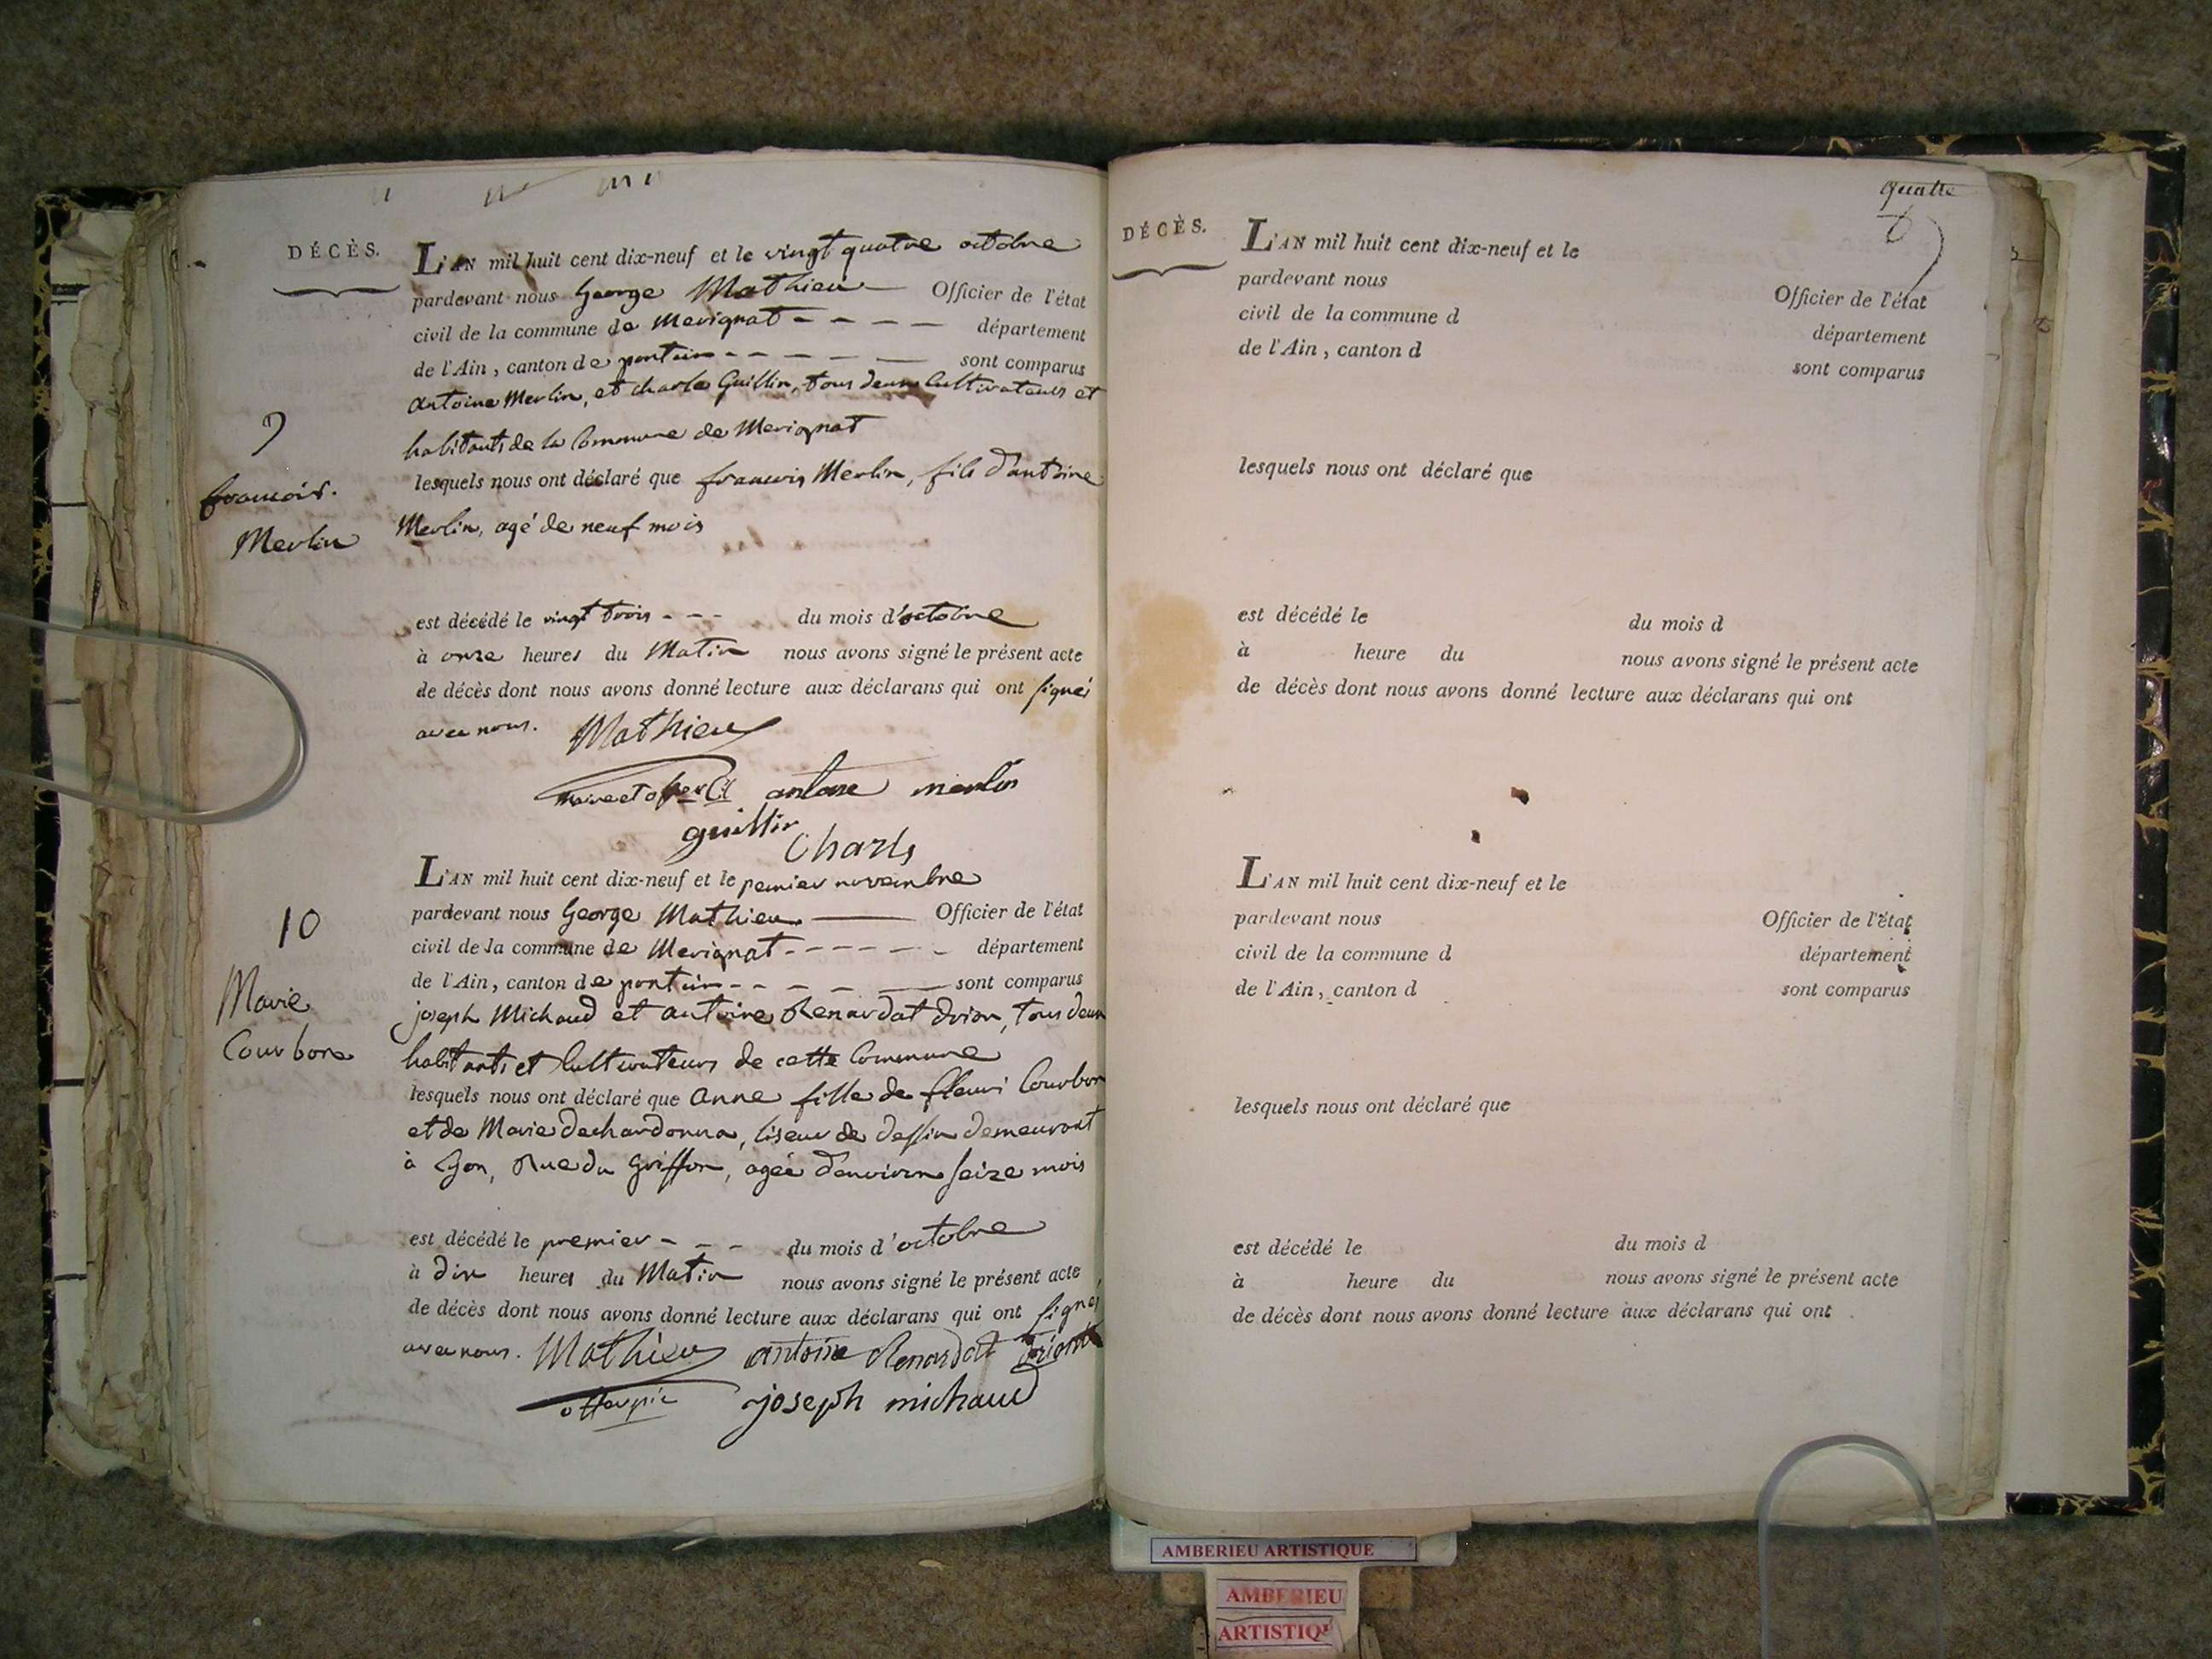 DÉCÈS.
L'AN mil huit cent dix-neuf et le vingt quatre octobre
pardevant nous George Mathieu Officier de l'état
civil de la commune de Merignat - - - - département
de l'Ain, canton de pontin - - - - - sont comparus
antoine Merlin, et charle Guillin, tous deux Cultivateurs et
habitants de la Commune de Merignat
9
francois.
Merlin
lesquels nous ont déclaré que francois Merlin, fils d'antoine
Merlin, agé de neuf mois
est décédé le vingt trois - - - du mois d'octobre
à onze heures du Matin nous avons signé le présent acte
de décès dont nous avons donné lecture aux déclarans qui ont signés
avec nous. Mathieu
antone merlin
guillin
Charls
10
Marie
Courbon
L'AN mil huit cent dix-neuf et le pemier novembre
pardevant nous George Mathieu Officier de l'état
civil de la commune de Merignat - - - - - - département
de l'Ain, canton de pontin - - - - sont comparus
joseph Michaud et antoine Renardat drion, tous deux
habitants et Cultivateurs de cette Commune
lesquels nous ont déclaré que anne fille de fleuri Courbon
et de Marie dechardonna, liseur de dessin demeurant
à Lyon, Rue du Griffon, agée d'environ seize mois
est décédé le premier - - - du mois d'octobre
à dix heures du Matin nous avons signé le présent acte
de décès dont nous avons donné lecture aux déclarans qui ont signés
avec nous. Mathieu antoine Renardat
joseph michaud
quatre
DÉCÈS.
L'AN mil huit cent dix-neuf et le
pardevant nous Officier de l'état
civil de la commune d département
de l'Ain, canton d sont comparus
lesquels nous ont déclaré que
est décédé le du mois d
à heure du nous avons signé le présent acte
de décès dont nous avons donné lecture aux déclarans qui ont
L'AN mil huit cent dix-neuf et le
pardevant nous Officier de l'état
civil de la commune d département
de l'Ain, canton d sont comparus
lesquels nous ont déclaré que
est décédé le du mois d
à heure du nous avons signé le présent acte
de décès dont nous avons donné lecture aux déclarans qui ont
AMBERIEU ARTISTIQUE
AMBERIEU
ARTISTIQU